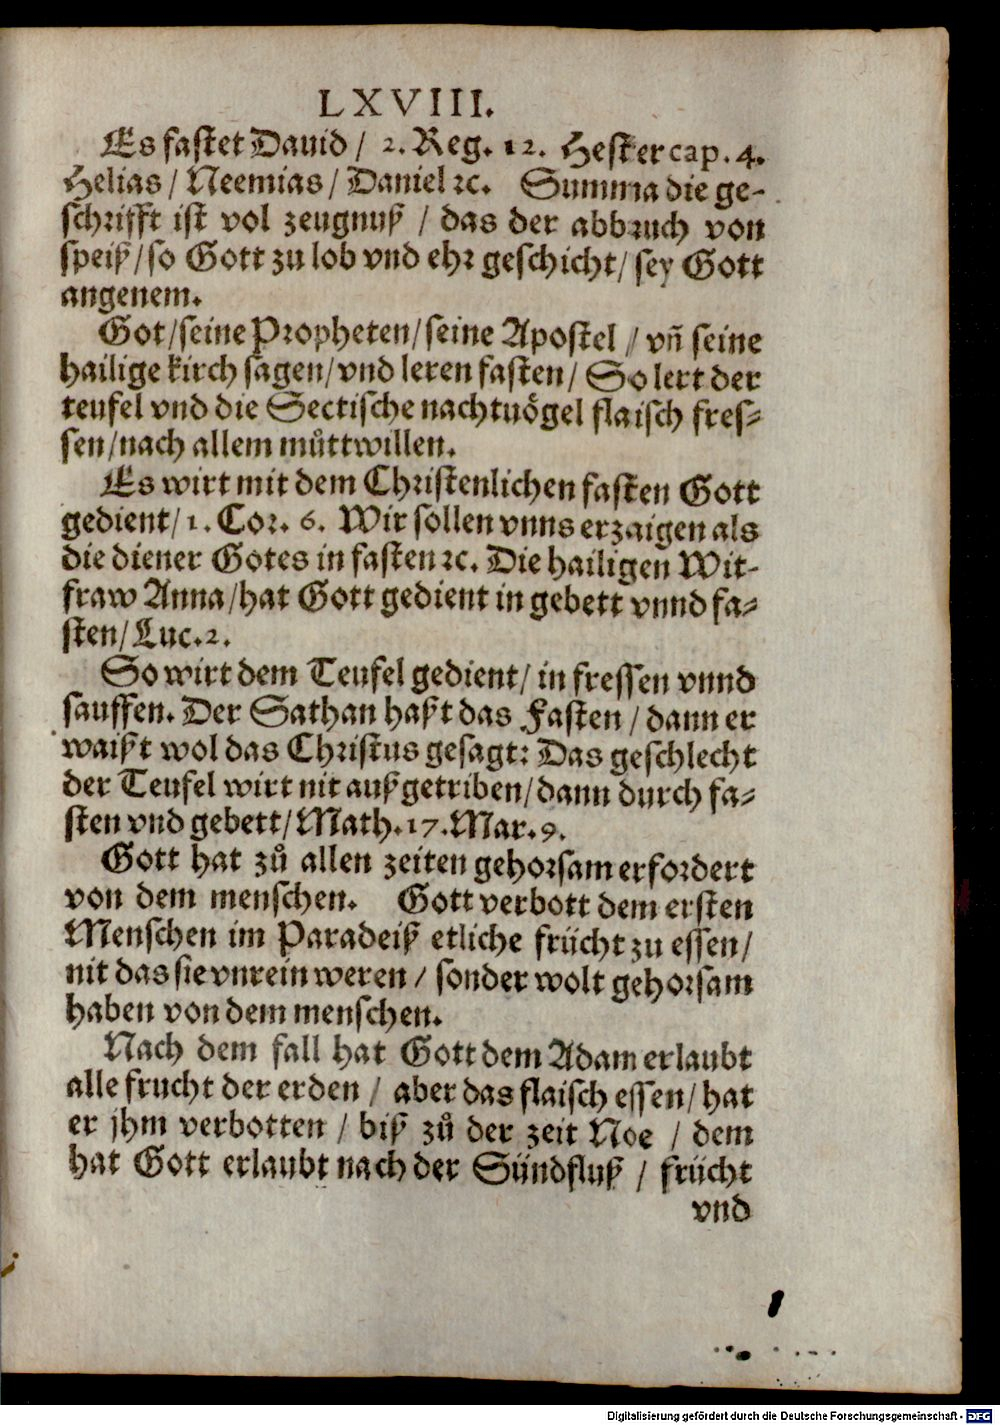 LXVIII.
Es fastet Dauid / 2. Reg. 12. Hester cap. 4.
Helias / Neemias / Daniel ꝛc. Summa die ge-
schrifft ist vol zeugnuß / das der abbruch von
speiß / so Gott zu lob vnd ehr geschicht / sey Gott
angenem.
Got / seine Propheten / seine Apostel / vñ seine
hailige kirch sagen / vnd leren fasten / So lert der
teufel vnd die Sectische nachtuögel flaisch fres-
sen / nach allem můttwillen.
Es wirt mit dem Christenlichen fasten Gott
gedient / 1. Cor. 6. Wir sollen vnns erzaigen als
die diener Gotes in fasten ꝛc. Die hailigen Wit-
fraw Anna / hat Gott gedient in gebett vnnd fa-
sten / Luc. 2.
So wirt dem Teufel gedient / in fressen vnnd
sauffen. Der Sathan haßt das Fasten / dann er
waißt wol das Christus gesagt: Das geschlecht
der Teufel wirt nit außgetriben / dann durch fa-
sten vnd gebett / Math. 17. Mar. 9.
Gott hat zů allen zeiten gehorsam erfordert
von dem menschen. Gott verbott dem ersten
Menschen im Paradeiß etliche frücht zu essen /
nit das sie vnrein weren / sonder wolt gehorsam
haben von dem menschen.
Nach dem fall hat Gott dem Adam erlaubt
alle frucht der erden / aber das flaisch essen / hat
er jhm verbotten / biß zů der zeit Noe / dem
hat Gott erlaubt nach der Sündfluß / frücht
vnd
Digitalisierung gefördert durch die Deutsche Forschungsgemeinschaft - DFG